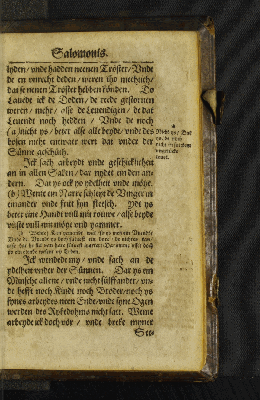 Salomonis.
lyden/ vnde hadden neenen Tröster/ Vnde
de en vnrecht deden/ weren tho mechtich/
dat se nenen Tröster hebben konden. Do
Lauede ick de Doden/ de rede gestoruen
weren/ mehr/ alse de Leuendigen/ de dat
Leuendt noch hedden/ Vnde de noch
(a) nicht ys/ beter alse alle beyde/ vnde des
bösen nicht enwar wert dat vnder der
Sünne geschüth.
Ick sach arbeydt vnde geschicklicheit
an in allen Saken/ dar nydet ein den an-
dern. Dat ys ock yo ydelheit vnde möye.
(b) Wente ein Narre schleyt de Vinger in
einander vnde frit syn flesch. Ydt ys
beter eine Handt vull mit rouwe/ alse beyde
vüste vull mit möye vnd yammer.
Ick wendede my/ vnde sach an de
ydelheit vnder der Sünnen. Dar ys ein
Minsche allene/ vnde nicht sülffander/ vn-
de hefft noch Kindt noch Broder/ noch ys
synes arbeydes neen Ende/ vnde syne Ogen
werden des Rykedohms nicht satt. Weme
arbeyde ick doch vör/ vnde breke myner
See-